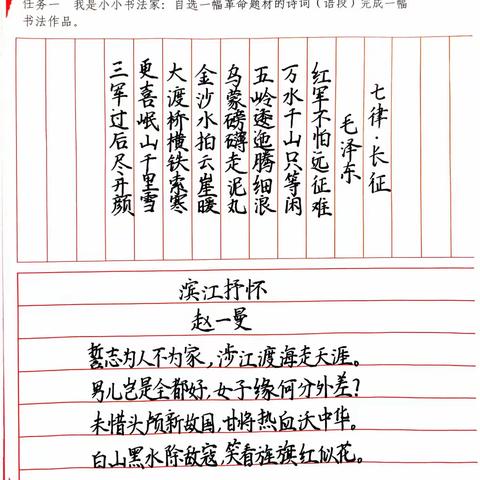 任务一 我是小小书法家：自选一幅革命题材的诗词（语段）完成一幅
书法作品。
七律·长征
毛泽东
红军不怕远征难
万水千山只等闲
五岭逶迤腾细浪
乌蒙磅礴走泥丸
金沙水拍云崖暖
大渡桥横铁索寒
更喜岷山千里雪
三军过后尽开颜
滨江抒怀
赵一曼
誓志为人不为家，涉江渡海走天涯。
男儿岂是全都好，女子缘何分外差？
未惜头颅新故国，甘将热血沃中华。
白山黑水除敌寇，笑看旌旗红似花。